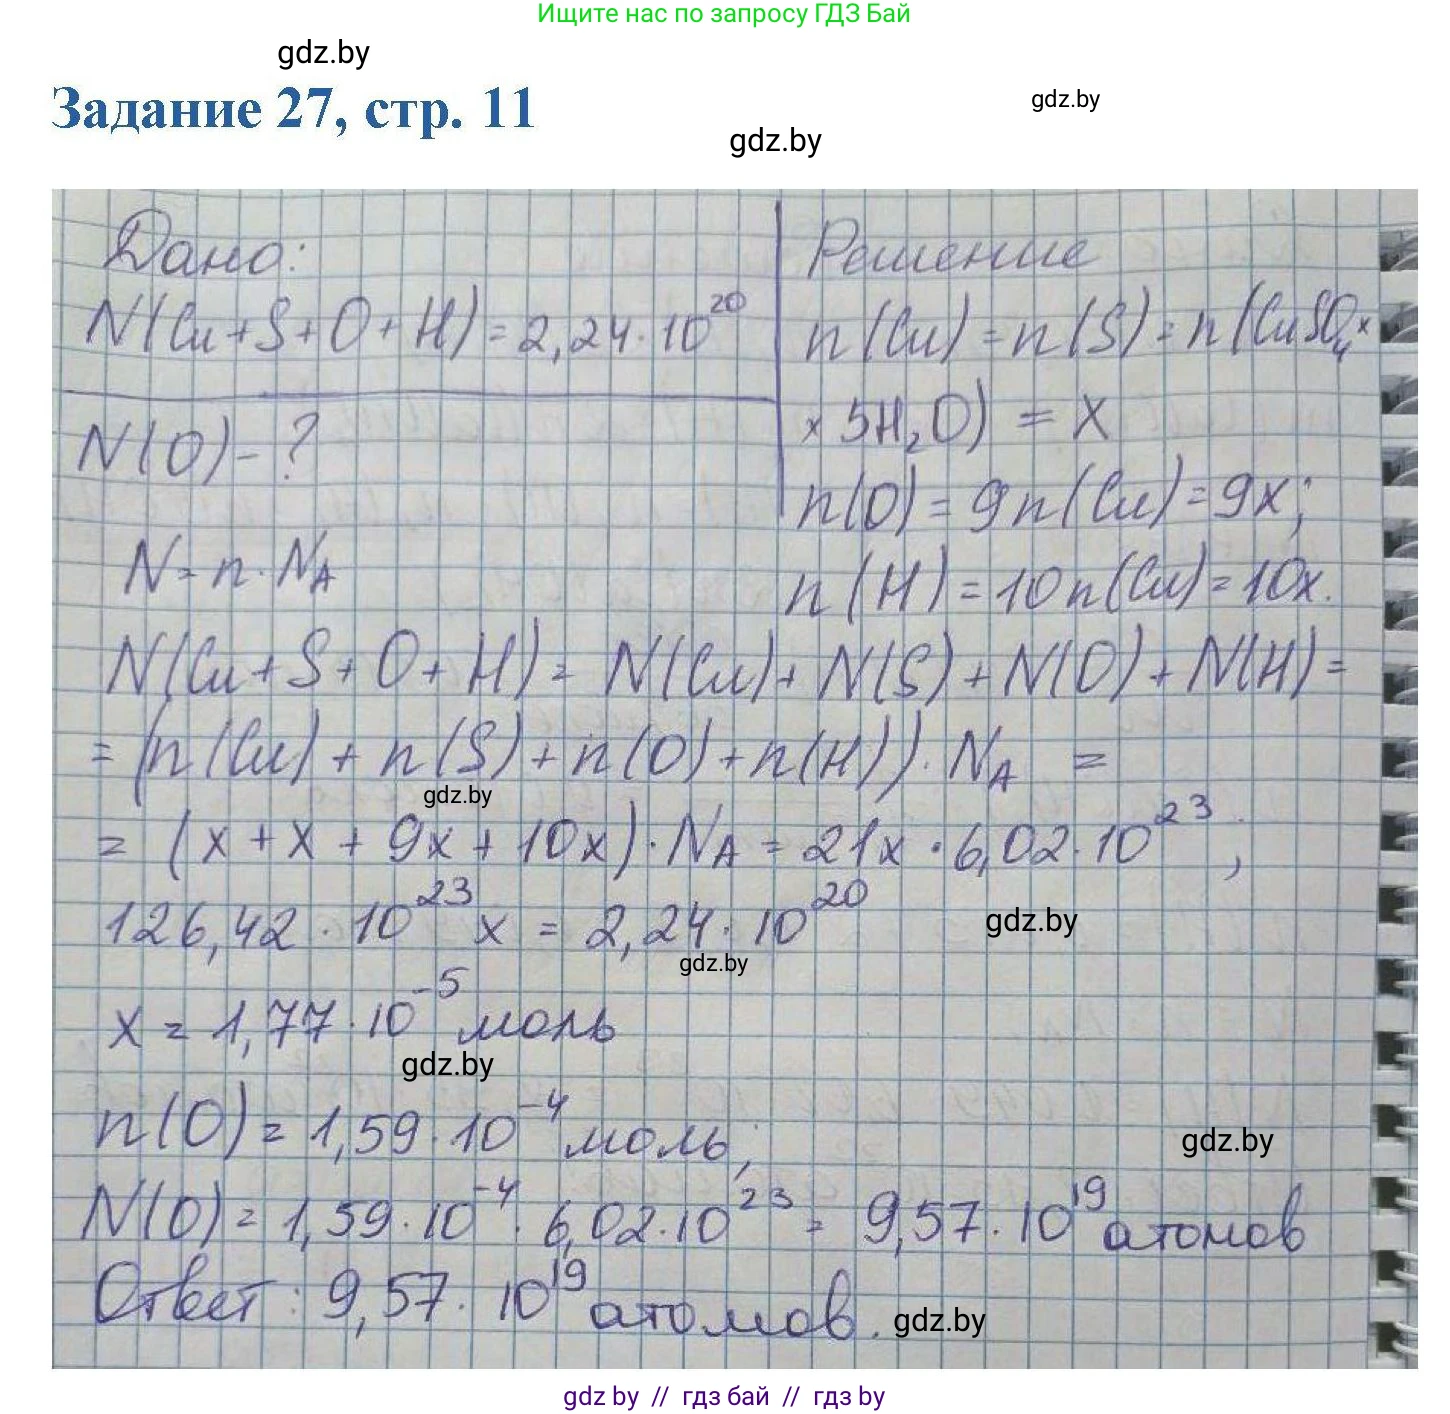 Ищите нас по запросу ГДЗ Бай
gdz.by
Задание 27, стр. 11
gdz.by
gdz.by
Дано:
N(Cu+S+O+H)=2,24·10²⁰
N(O)-?
N=n·N_A
Решение
n(Cu)=n(S)=n(CuSO₄×
×5H₂O)=x
n(O)=9n(Cu)=9x;
n(H)=10n(Cu)=10x.
N(Cu+S+O+H)=N(Cu)+N(S)+N(O)+N(H)=
=(n(Cu)+n(S)+n(O)+n(H))·N_A=
gdz.by
=(x+x+9x+10x)·N_A=21x·6,02·10²³;
126,42·10²³x=2,24·10²⁰
gdz.by
gdz.by
x=1,77·10⁻⁵моль
gdz.by
n(O)=1,59·10⁻⁴моль;
gdz.by
N(O)=1,59·10⁻⁴·6,02·10²³=9,57·10¹⁹атомов
Ответ: 9,57·10¹⁹атомов.
gdz.by
gdz by // гдз бай // гдз by